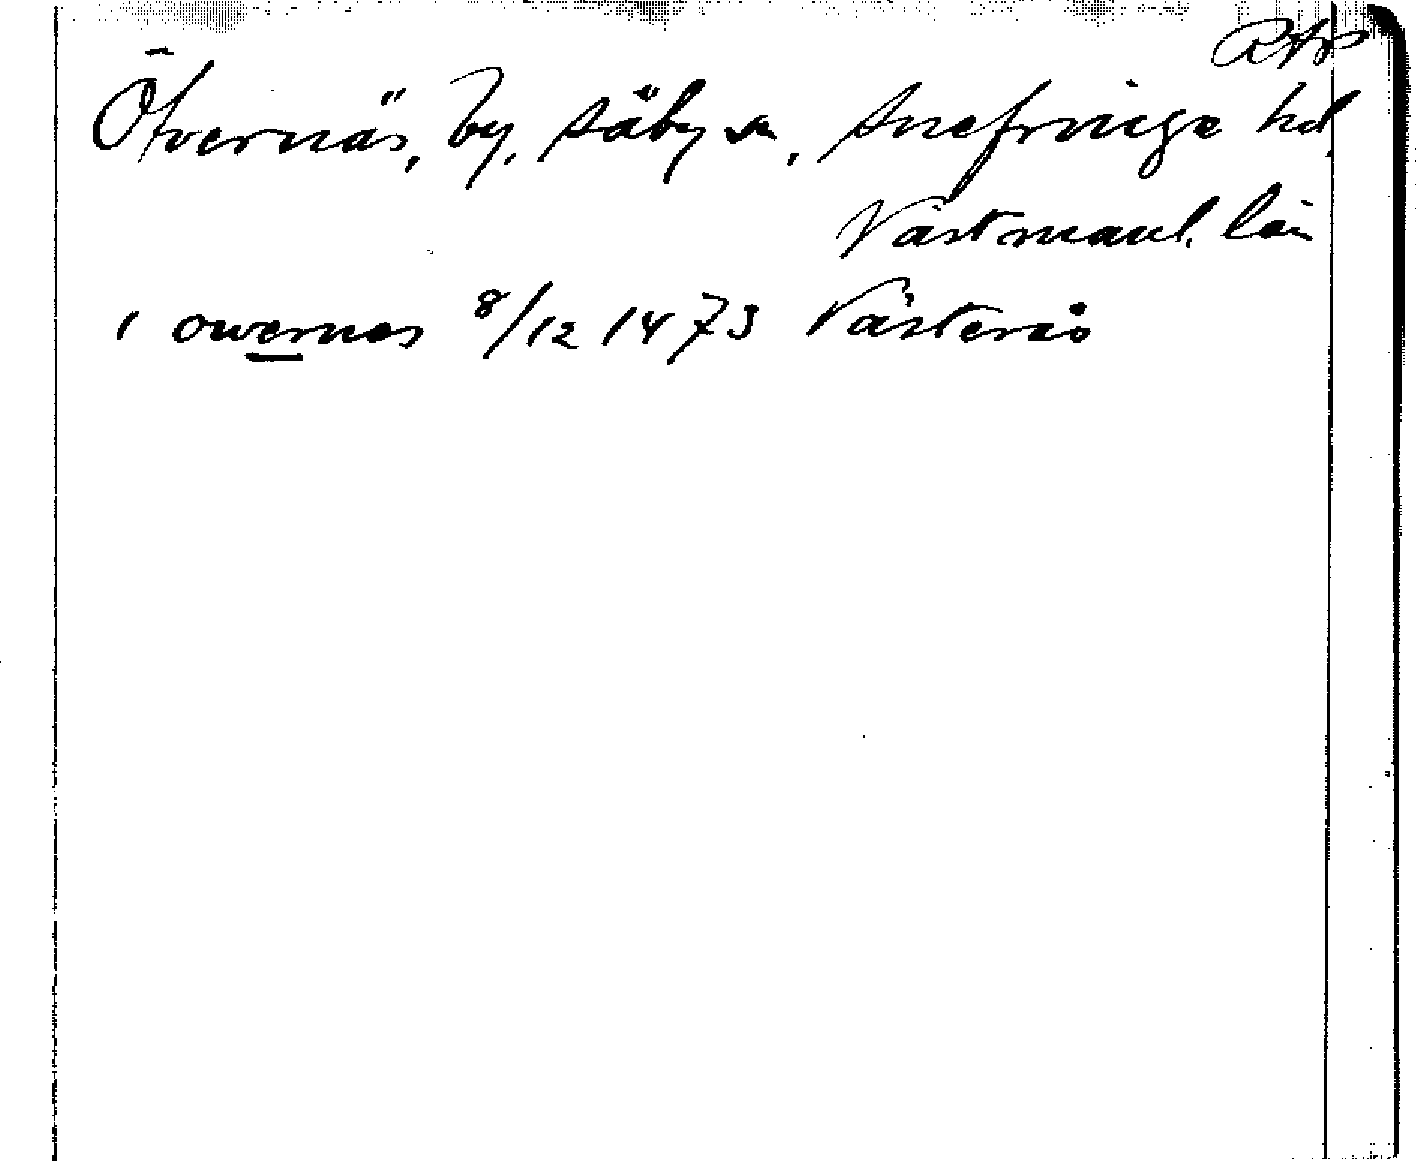 RAp
Öfvernäs, by, Säby sn, Snefringe hd,
Västmanl. län
i owernes 8/12 1473 Västerås